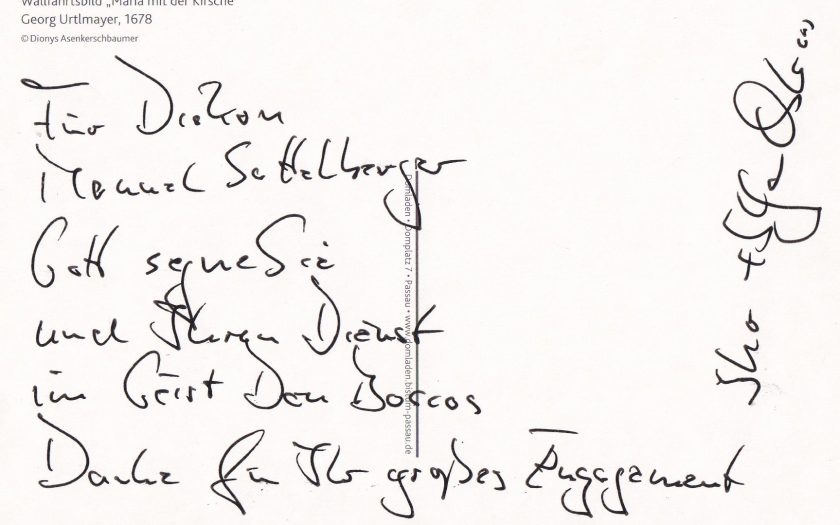 Wallfahrtsbild „Maria mit der Kirsche"
Georg Urtlmayer, 1678
© Dionys Asenkerschbaumer
Für Diakon
Manuel Sattelberger
Gott segne Sie
und Ihren Dienst
im Geist Don Boscos
Danke für Ihr großes Engagement
Domladen • Domplatz 7 • Passau • www.domladen.bistum-passau.de
Ihr +